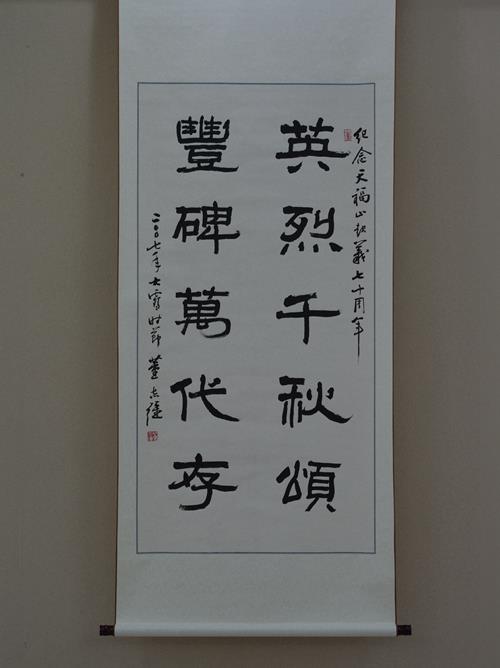 纪念天福山起義七十周年
英烈千秋頌
豐碑萬代存
二〇〇七年大雪时节